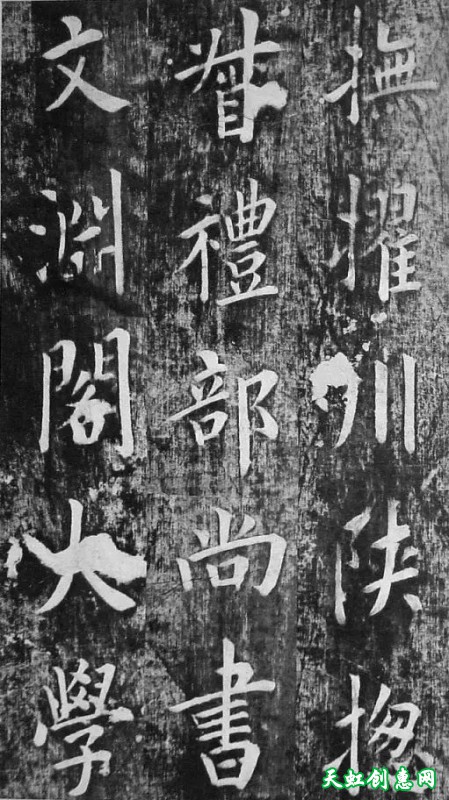 撫擢川陝揔
督禮部尚書
文淵閣大學
天虹创惠网